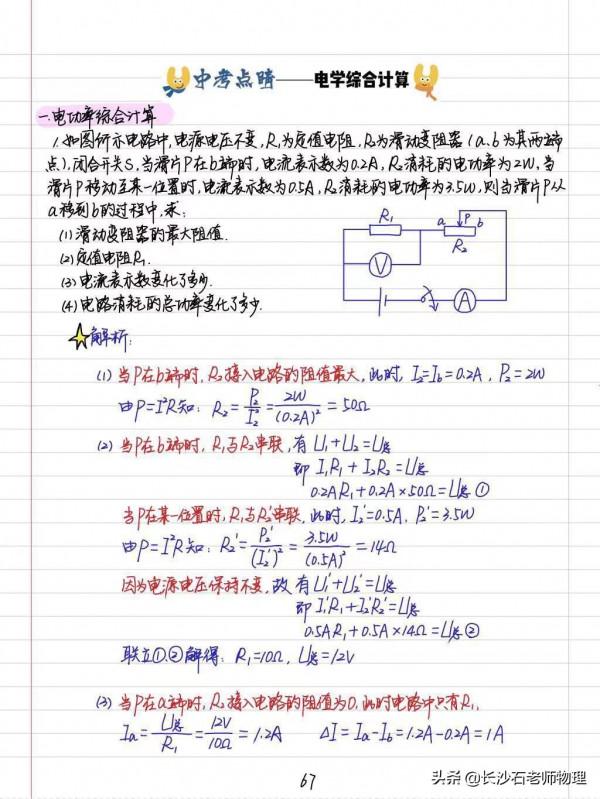 中考点睛——电学综合计算
一.电功率综合计算
1.如图所示电路中,电源电压不变,R₁为定值电阻,R₂为滑动变阻器(a、b为其两端
点),闭合开关S,当滑片P在b端时,电流表示数为0.2A,R₂消耗的电功率为2W,当
滑片P移动至某一位置时,电流表示数为0.5A,R₂消耗的电功率为3.5W,则当滑片P从
a移到b的过程中,求:
(1)滑动变阻器的最大阻值.
(2)定值电阻R₁.
(3)电流表示数变化了多少.
(4)电路消耗的总功率变化了多少.
R₁ a P b
R₂
V
A
解析:
(1) 当P在b端时,R₂接入电路的阻值最大,此时,I₂=I_b=0.2A,P₂=2W
由P=I²R知: R₂=P₂/I₂²=2W/(0.2A)²=50Ω
(2) 当P在b端时,R₁与R₂串联,有U₁+U₂=U总
即 I₁R₁+I₂R₂=U总
0.2AR₁+0.2A×50Ω=U总①
当P在某一位置时,R₁与R₂'串联,此时,I₂'=0.5A,P₂'=3.5W
由P=I²R知: R₂'=P₂'/(I₂')²=3.5W/(0.5A)²=14Ω
因为电源电压保持不变,故有U₁'+U₂'=U总
即 I₁'R₁+I₂'R₂'=U总
0.5AR₁+0.5A×14Ω=U总②
联立①.②解得: R₁=10Ω,U总=12V
(3) 当P在a端时,R₂接入电路的阻值为0,此时电路中只有R₁,
Ia=U总/R₁=12V/10Ω=1.2A ΔI=Ia-Ib=1.2A-0.2A=1A
67
头条@长沙石老师物理